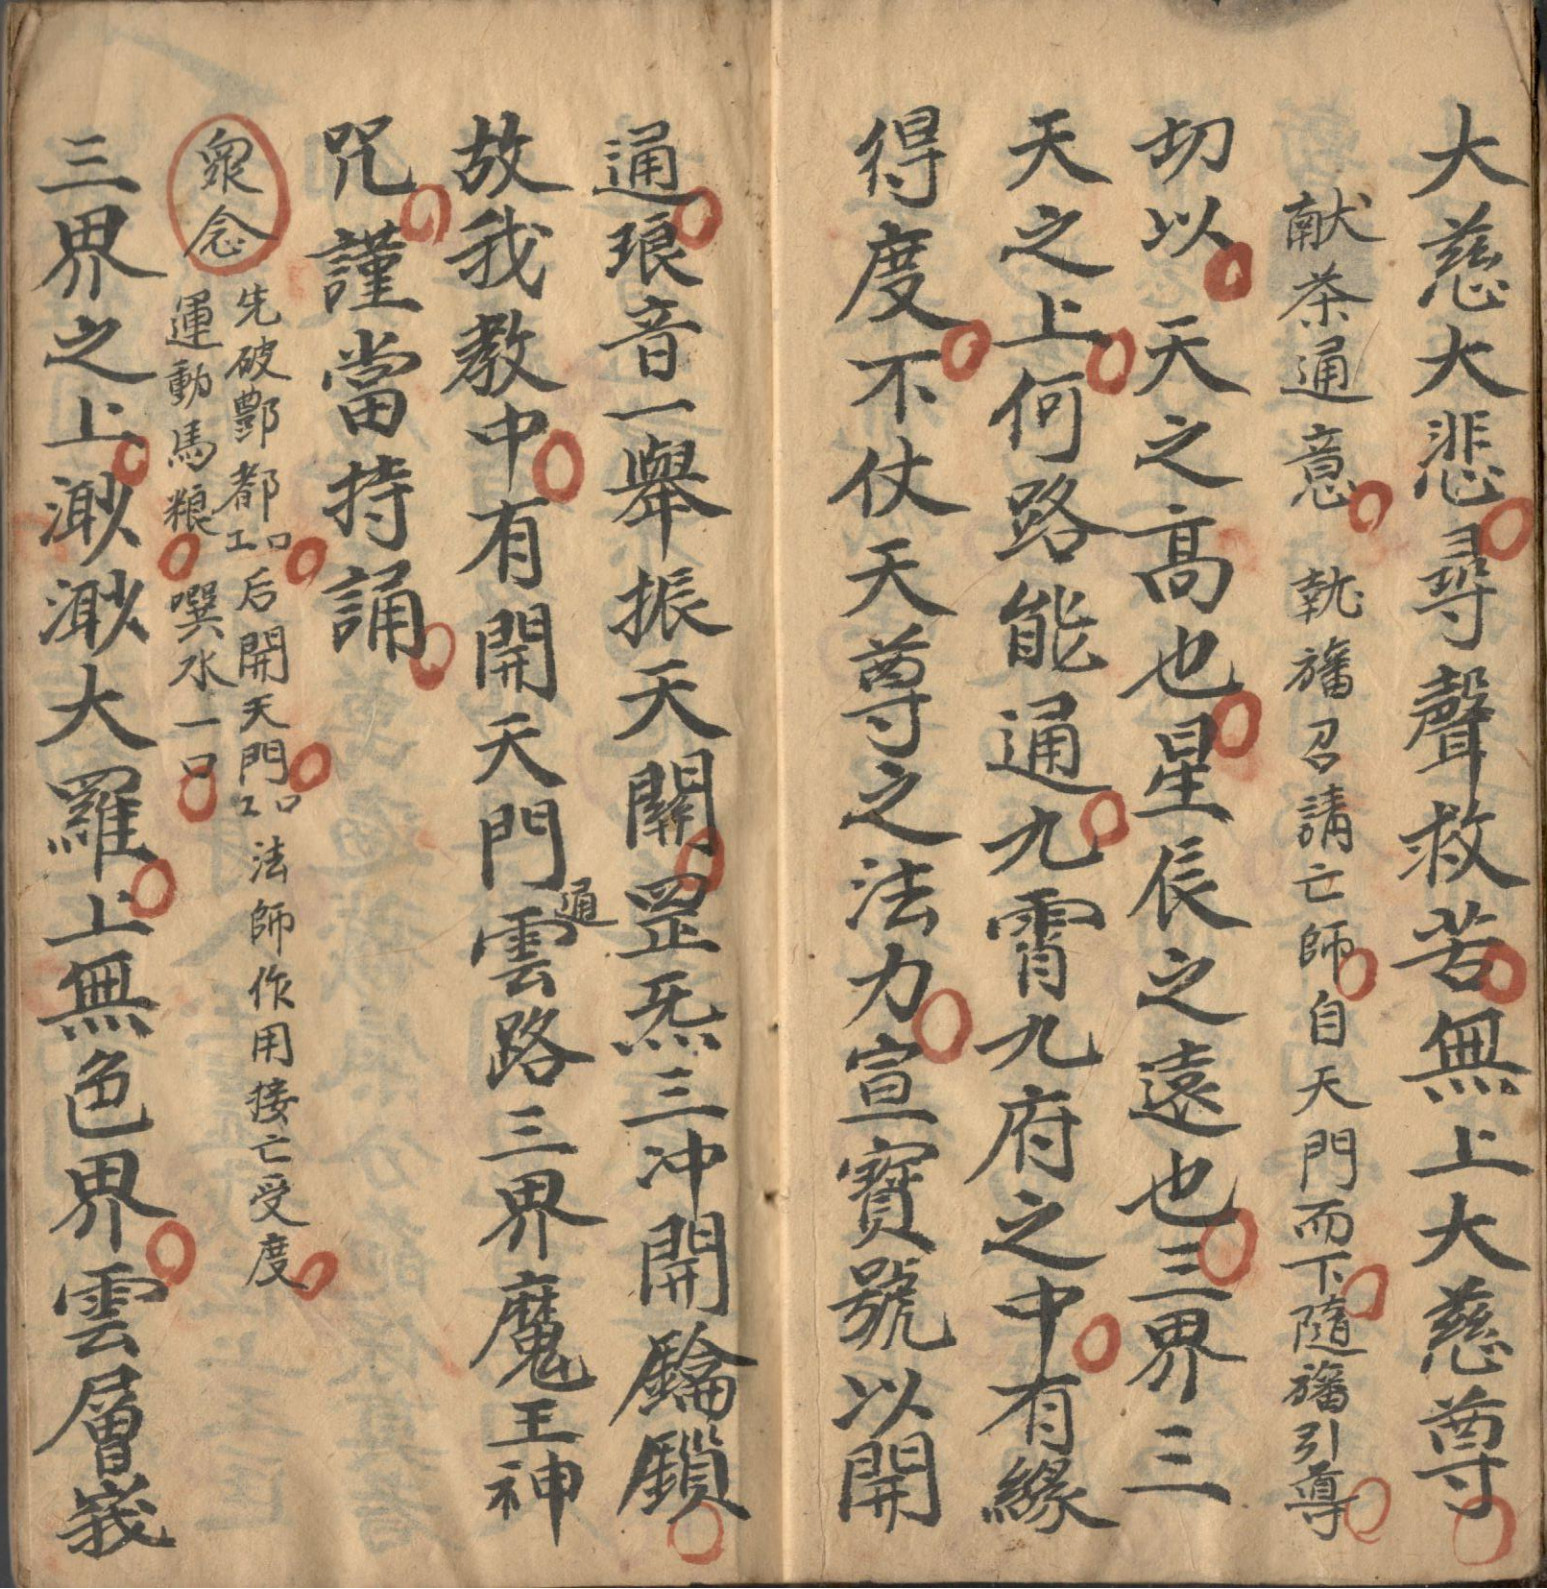 大慈大悲尋聲救苦無上大慈尊
献茶通意 執旛召請亡師自天門而下隨旛引導
切以天之高也星辰之遠也三界三
天之上何路能通九霄九府之中有緣
得度不仗天尊之法力宣寶號以開
通琅音一舉振天關罡炁三冲開鑰鎖
故我教中有開天門通雲路三界魔王神
咒謹當持誦
眾念
先破酆都㘝后開天門㘝法師作用接亡受度
運動馬粮噀水一口
三界之上渺渺大羅上無色界雲層峩